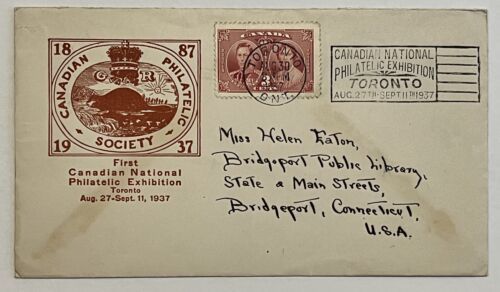 18 87
CANADIAN PHILATELIC
G R
SOCIETY
19 37
First
Canadian National
Philatelic Exhibition
Toronto
Aug. 27-Sept. 11, 1937
CANADA
3
CENTS
TORONTO
ONT.
CANADIAN NATIONAL
PHILATELIC EXHIBITION
TORONTO
AUG. 27TH-SEPT 11TH 1937
Miss Helen Eaton,
Bridgeport Public Library,
State & Main Streets,
Bridgeport, Connecticut,
U.S.A.